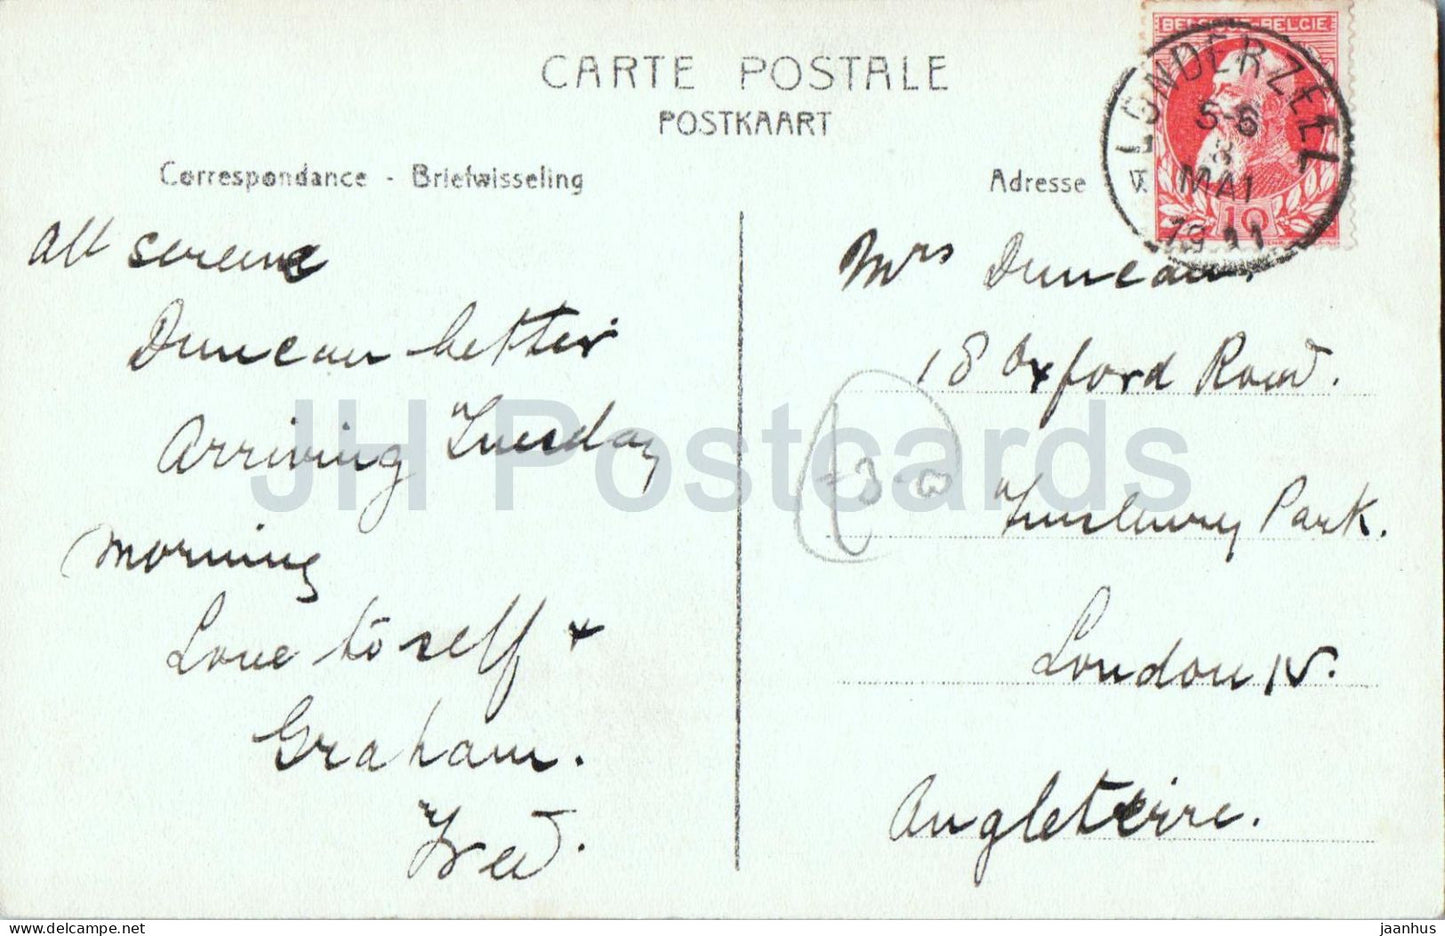 CARTE POSTALE
POSTKAART
Correspondance - Briefwisseling
Adresse
BELGIQUE-BELGIE
10
LONDERZEEL
5-6
MAI
1911
All serene
Duncan better
Arriving Tuesday
Morning
Love to self +
Graham.
Fred.
Mrs Duncan.
18 Oxford Road.
Finsbury Park.
London N.
Angleterre.
JH Postcards
jaanhus / delcampe.net